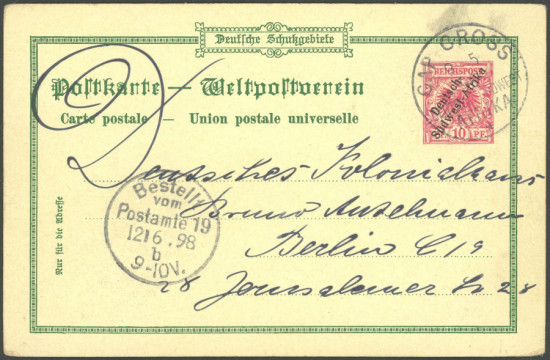 Deutsche Schutzgebiete
Postkarte — Weltpostverein
Carte postale — Union postale universelle
CAP CROSS
5
AFRIKA
REICHSPOST
Deutsch-
Südwest-Afrika
10 PF.
Deutsches Kolonialhaus
Bruno Antelmann
Berlin C 19
28 Jerusalemer Str 28
Bestellt
vom
Postamte 19
12/6.98
b
9-10V.
Nur für die Adresse